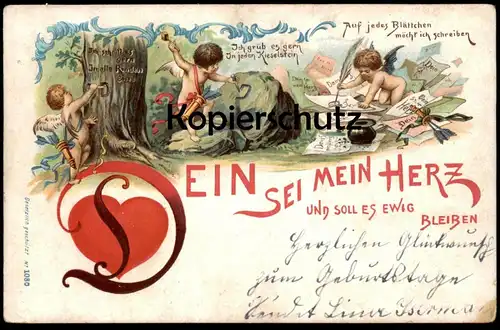 Ich schnitt es gern
In alle Rinden
Ich grüb es gern
In jeden Kieselstein
Auf jedes Blättchen
möcht ich schreiben
Kopierschutz
DEIN SEI MEIN HERZ
UND SOLL ES EWIG
BLEIBEN
Herzlichen Glückwunsch
zum Geburtstage
sendet Lina
Gesetzlich geschützt Nº 1080